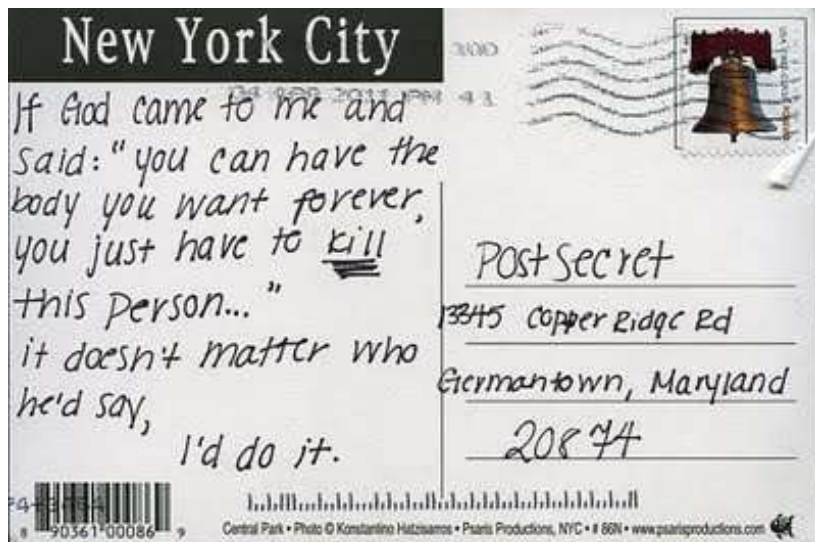 New York City
If God came to me and
said: "you can have the
body you want forever,
you just have to kill
this person..."
it doesn't matter who
he'd say,
I'd do it.
PostSecret
13345 Copper Ridge Rd
Germantown, Maryland
20874
8 90361 00086 9
Central Park • Photo © Konstantino Hatzisarros • Psaris Productions, NYC • # 86N • www.psarisproductions.com